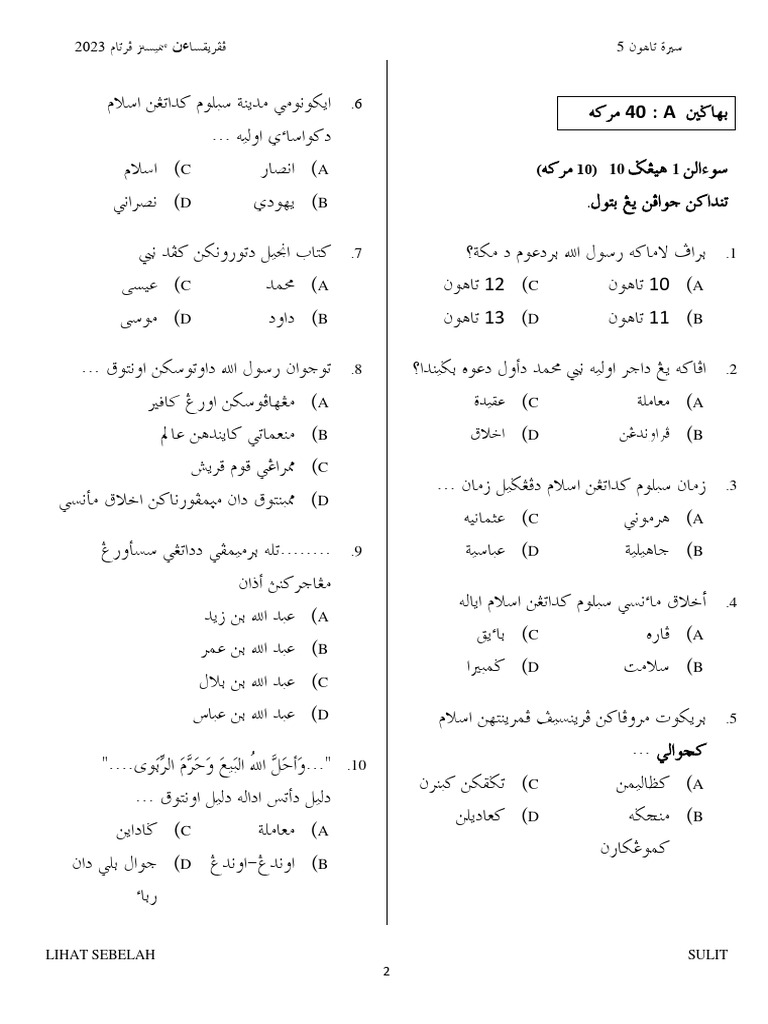 سيرة تاهون 5
ڤڤريقساءن سيميستر ڤرتام 2023
بهاݢين A : 40 مركه
سوءالن 1 هيڠݢ 10 (10 مركه)
تنداكن جواڤن يڠ بتول.
1. براڤ لاماكه رسول الله بردعوه د مكة؟
A) 10 تاهون C) 12 تاهون
B) 11 تاهون D) 13 تاهون
2. اڤاكه يڠ داجر اوليه نبي محمد دأول دعوه بݢيندا؟
A) معاملة C) عقيدة
B) ڤراوندڠن D) اخلاق
3. زمان سبلوم كداتڠن اسلام دڤڠݢيل زمان ...
A) هرموني C) عثمانيه
B) جاهيلية D) عباسية
4. أخلاق ماءنسي سبلوم كداتڠن اسلام اياله
A) ڤاره C) باءيق
B) سلامت D) ݢمبيرا
5. بريكوت مروڤاكن ڤرينسيڤ ڤمرينتهن اسلام
كچوالي ...
A) كظاليمن C) تݢقكن كبنرن
B) منچݢه D) كعاديلن
كموڠكارن
6. ايكونومي مدينة سبلوم كداتڠن اسلام
دكواساءي اوليه ...
A) انصار C) اسلام
B) يهودي D) نصراني
7. كتاب انجيل دتورونكن كڤد نبي
A) محمد C) عيسى
B) داود D) موسى
8. توجوان رسول الله داوتوسكن اونتوق ...
A) مڠهاڤوسكن اورڠ كافير
B) منعماتي كاينداهن عالم
C) ممراڠي قوم قريش
D) ممبنتوق دان مڽمڤورناكن اخلاق مأنسي
9. ........تله برميمڤي دداتڠي سسأورڠ
مڠاجركنڽ أذان
A) عبد الله بن زيد
B) عبد الله بن عمر
C) عبد الله بن بلال
D) عبد الله بن عباس
10. "...وَأَحَلَّ اللهُ البَيعَ وَحَرَّمَ الرِّبَوى...."
دليل دأتس اداله دليل اونتوق ...
A) معاملة C) كاداين
B) اوندڠ-اوندڠ D) جوال بلي دان
رباء
LIHAT SEBELAH
SULIT
2